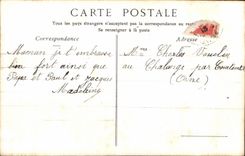 CARTE POSTALE
Tous les pays étrangers n'acceptent pas la correspondance au recto.
Se renseigner à la poste
Correspondance
Adresse
Maman je t'embrasse
bien fort ainsi que
Papa et Paul et Jacques
Madeleine
Mme Charles
au Chalange par
(Orne)